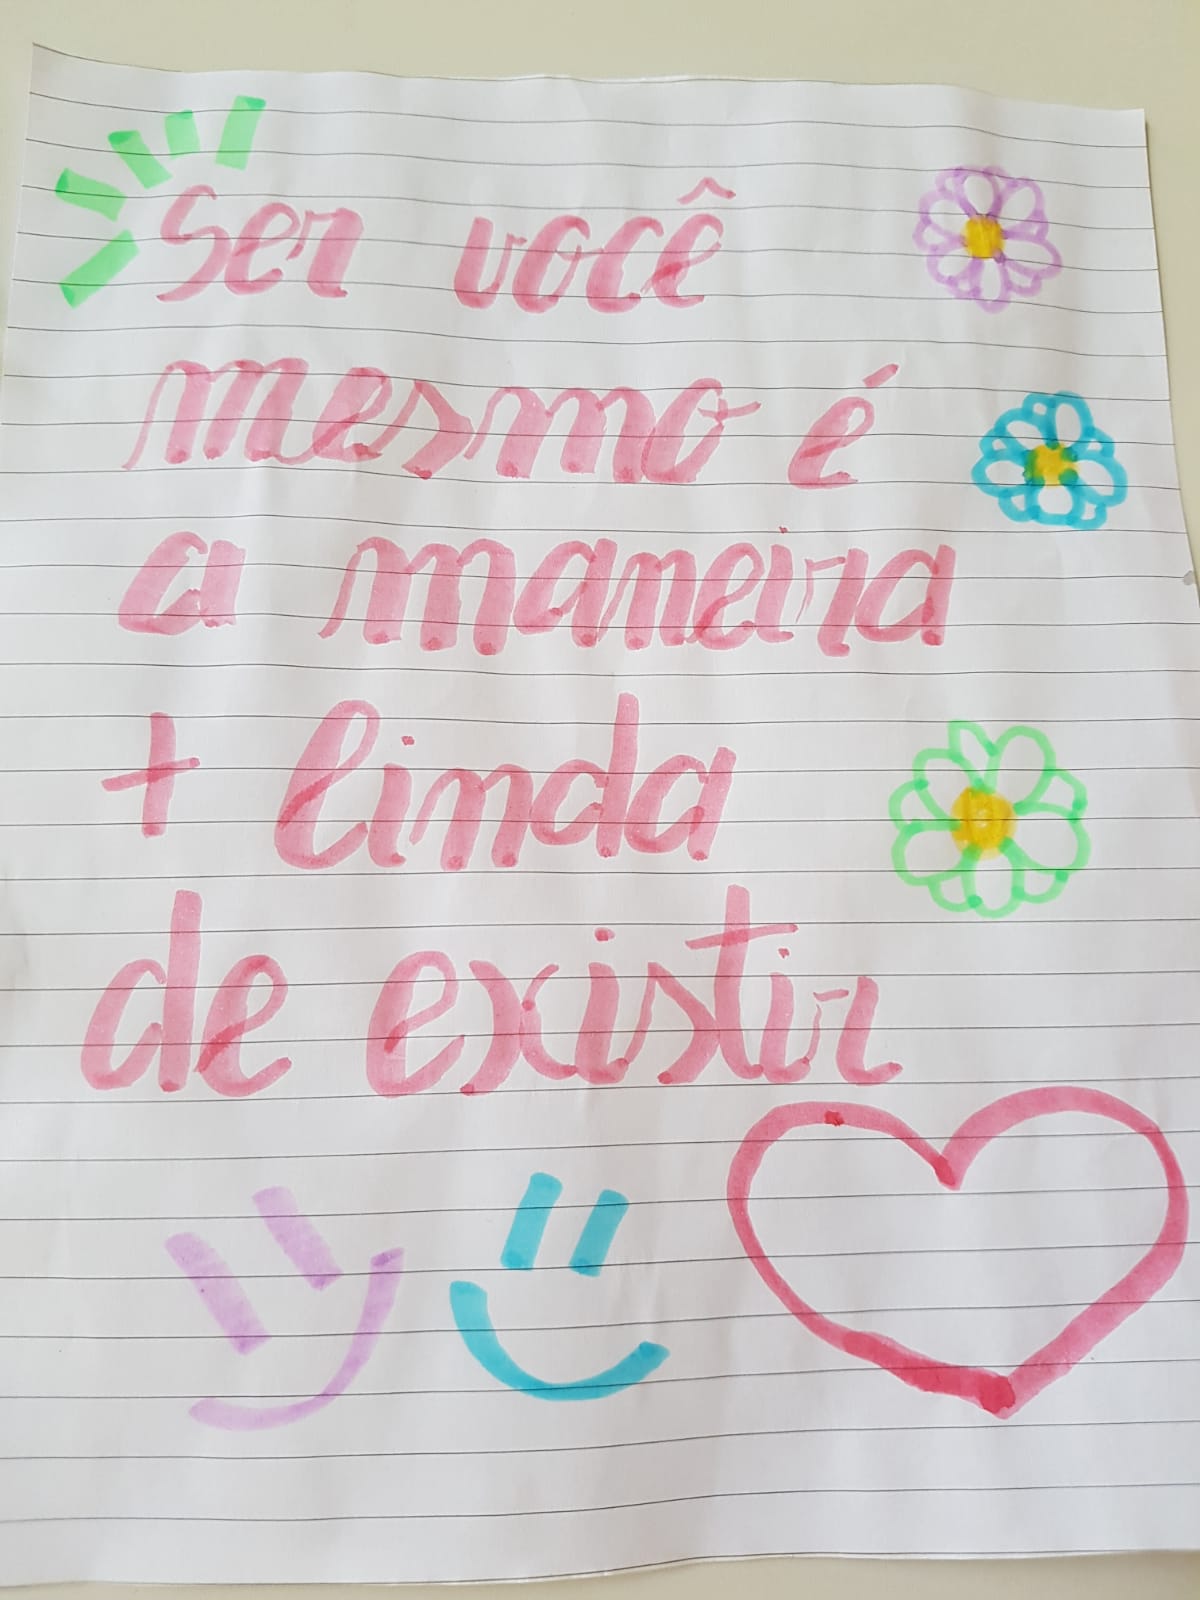 Ser você
mesmo é
a maneira
+ linda
de existir